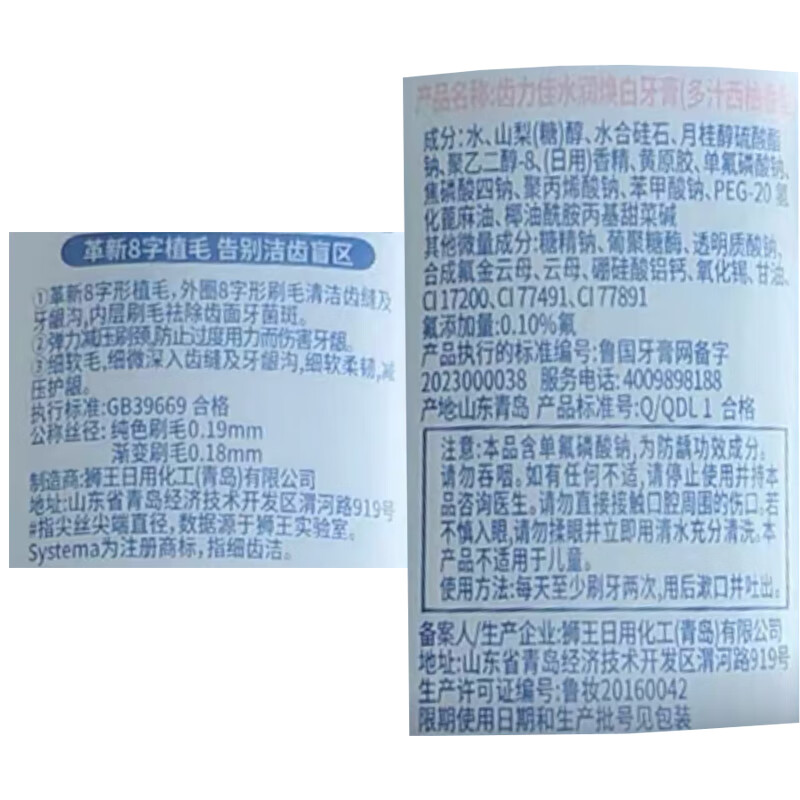 革新8字植毛 告别洁齿盲区
①革新8字形植毛,外圈8字形刷毛清洁齿缝及
牙龈沟,内层刷毛祛除齿面牙菌斑。
②弹力减压刷颈,防止过度用力而伤害牙龈。
③细软毛,细微深入齿缝及牙龈沟,细软柔韧,减
压护龈。
执行标准:GB39669 合格
公称丝径: 纯色刷毛0.19mm
渐变刷毛0.18mm
制造商:狮王日用化工(青岛)有限公司
地址:山东省青岛经济技术开发区渭河路919号
#指尖丝尖端直径,数据源于狮王实验室。
Systema为注册商标,指细齿洁。
产品名称:齿力佳水润焕白牙膏(多汁西柚香型
成分:水、山梨(糖)醇、水合硅石、月桂醇硫酸酯
钠、聚乙二醇-8、(日用)香精、黄原胶、单氟磷酸钠、
焦磷酸四钠、聚丙烯酸钠、苯甲酸钠、PEG-20 氢
化蓖麻油、椰油酰胺丙基甜菜碱
其他微量成分:糖精钠、葡聚糖酶、透明质酸钠、
合成氟金云母、云母、硼硅酸铝钙、氧化锡、甘油、
CI 17200、CI 77491、CI 77891
氟添加量:0.10%氟
产品执行的标准编号:鲁国牙膏网备字
2023000038 服务电话:4009898188
产地:山东青岛 产品标准号:Q/QDL 1 合格
注意:本品含单氟磷酸钠,为防龋功效成分。
请勿吞咽。如有任何不适,请停止使用并持本
品咨询医生。请勿直接接触口腔周围的伤口。若
不慎入眼,请勿揉眼并立即用清水充分清洗。本
产品不适用于儿童。
使用方法:每天至少刷牙两次,用后漱口并吐出。
备案人/生产企业:狮王日用化工(青岛)有限公司
地址:山东省青岛经济技术开发区渭河路919号
生产许可证编号:鲁妆20160042
限期使用日期和生产批号见包装